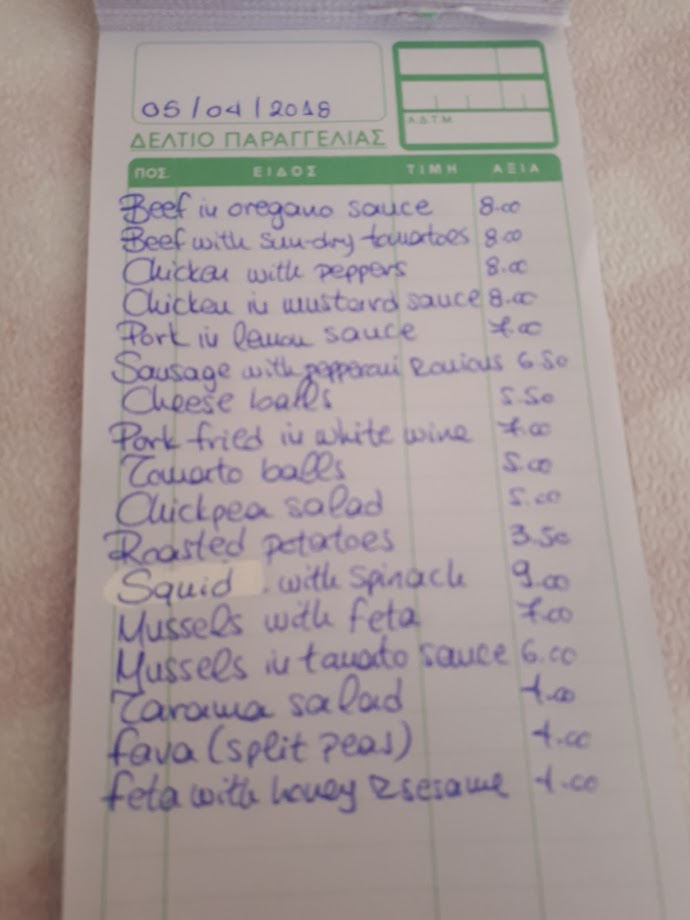 05/04/2018
Λ.Δ.Τ.Μ.
ΔΕΛΤΙΟ ΠΑΡΑΓΓΕΛΙΑΣ
ΠΟΣ. ΕΙΔΟΣ ΤΙΜΗ ΑΞΙΑ
Beef in oregano sauce 8.00
Beef with sun-dry tomatoes 8.00
Chicken with peppers 8.00
Chicken in mustard sauce 8.00
Pork in lemon sauce 7.00
Sausage with pepperoni & onions 6.50
Cheese balls 5.50
Pork fried in white wine 7.00
Tomato balls 5.00
Chickpea salad 5.00
Roasted potatoes 3.50
Squid with spinach 9.00
Mussels with feta 7.00
Mussels in tomato sauce 6.00
Tarama salad 4.00
fava (split peas) 4.00
feta with honey & sesame 4.00